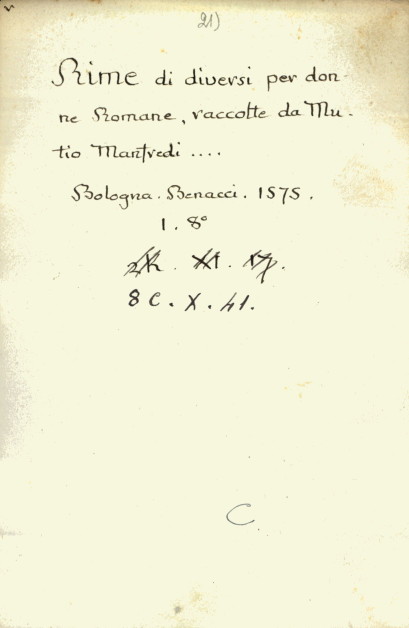 21)
Rime di diversi per don-
ne Romane, raccolte da Mu-
tio Manfredi ....
Bologna. Benacci. 1575.
1. 8°
8 C. X. 41.
C